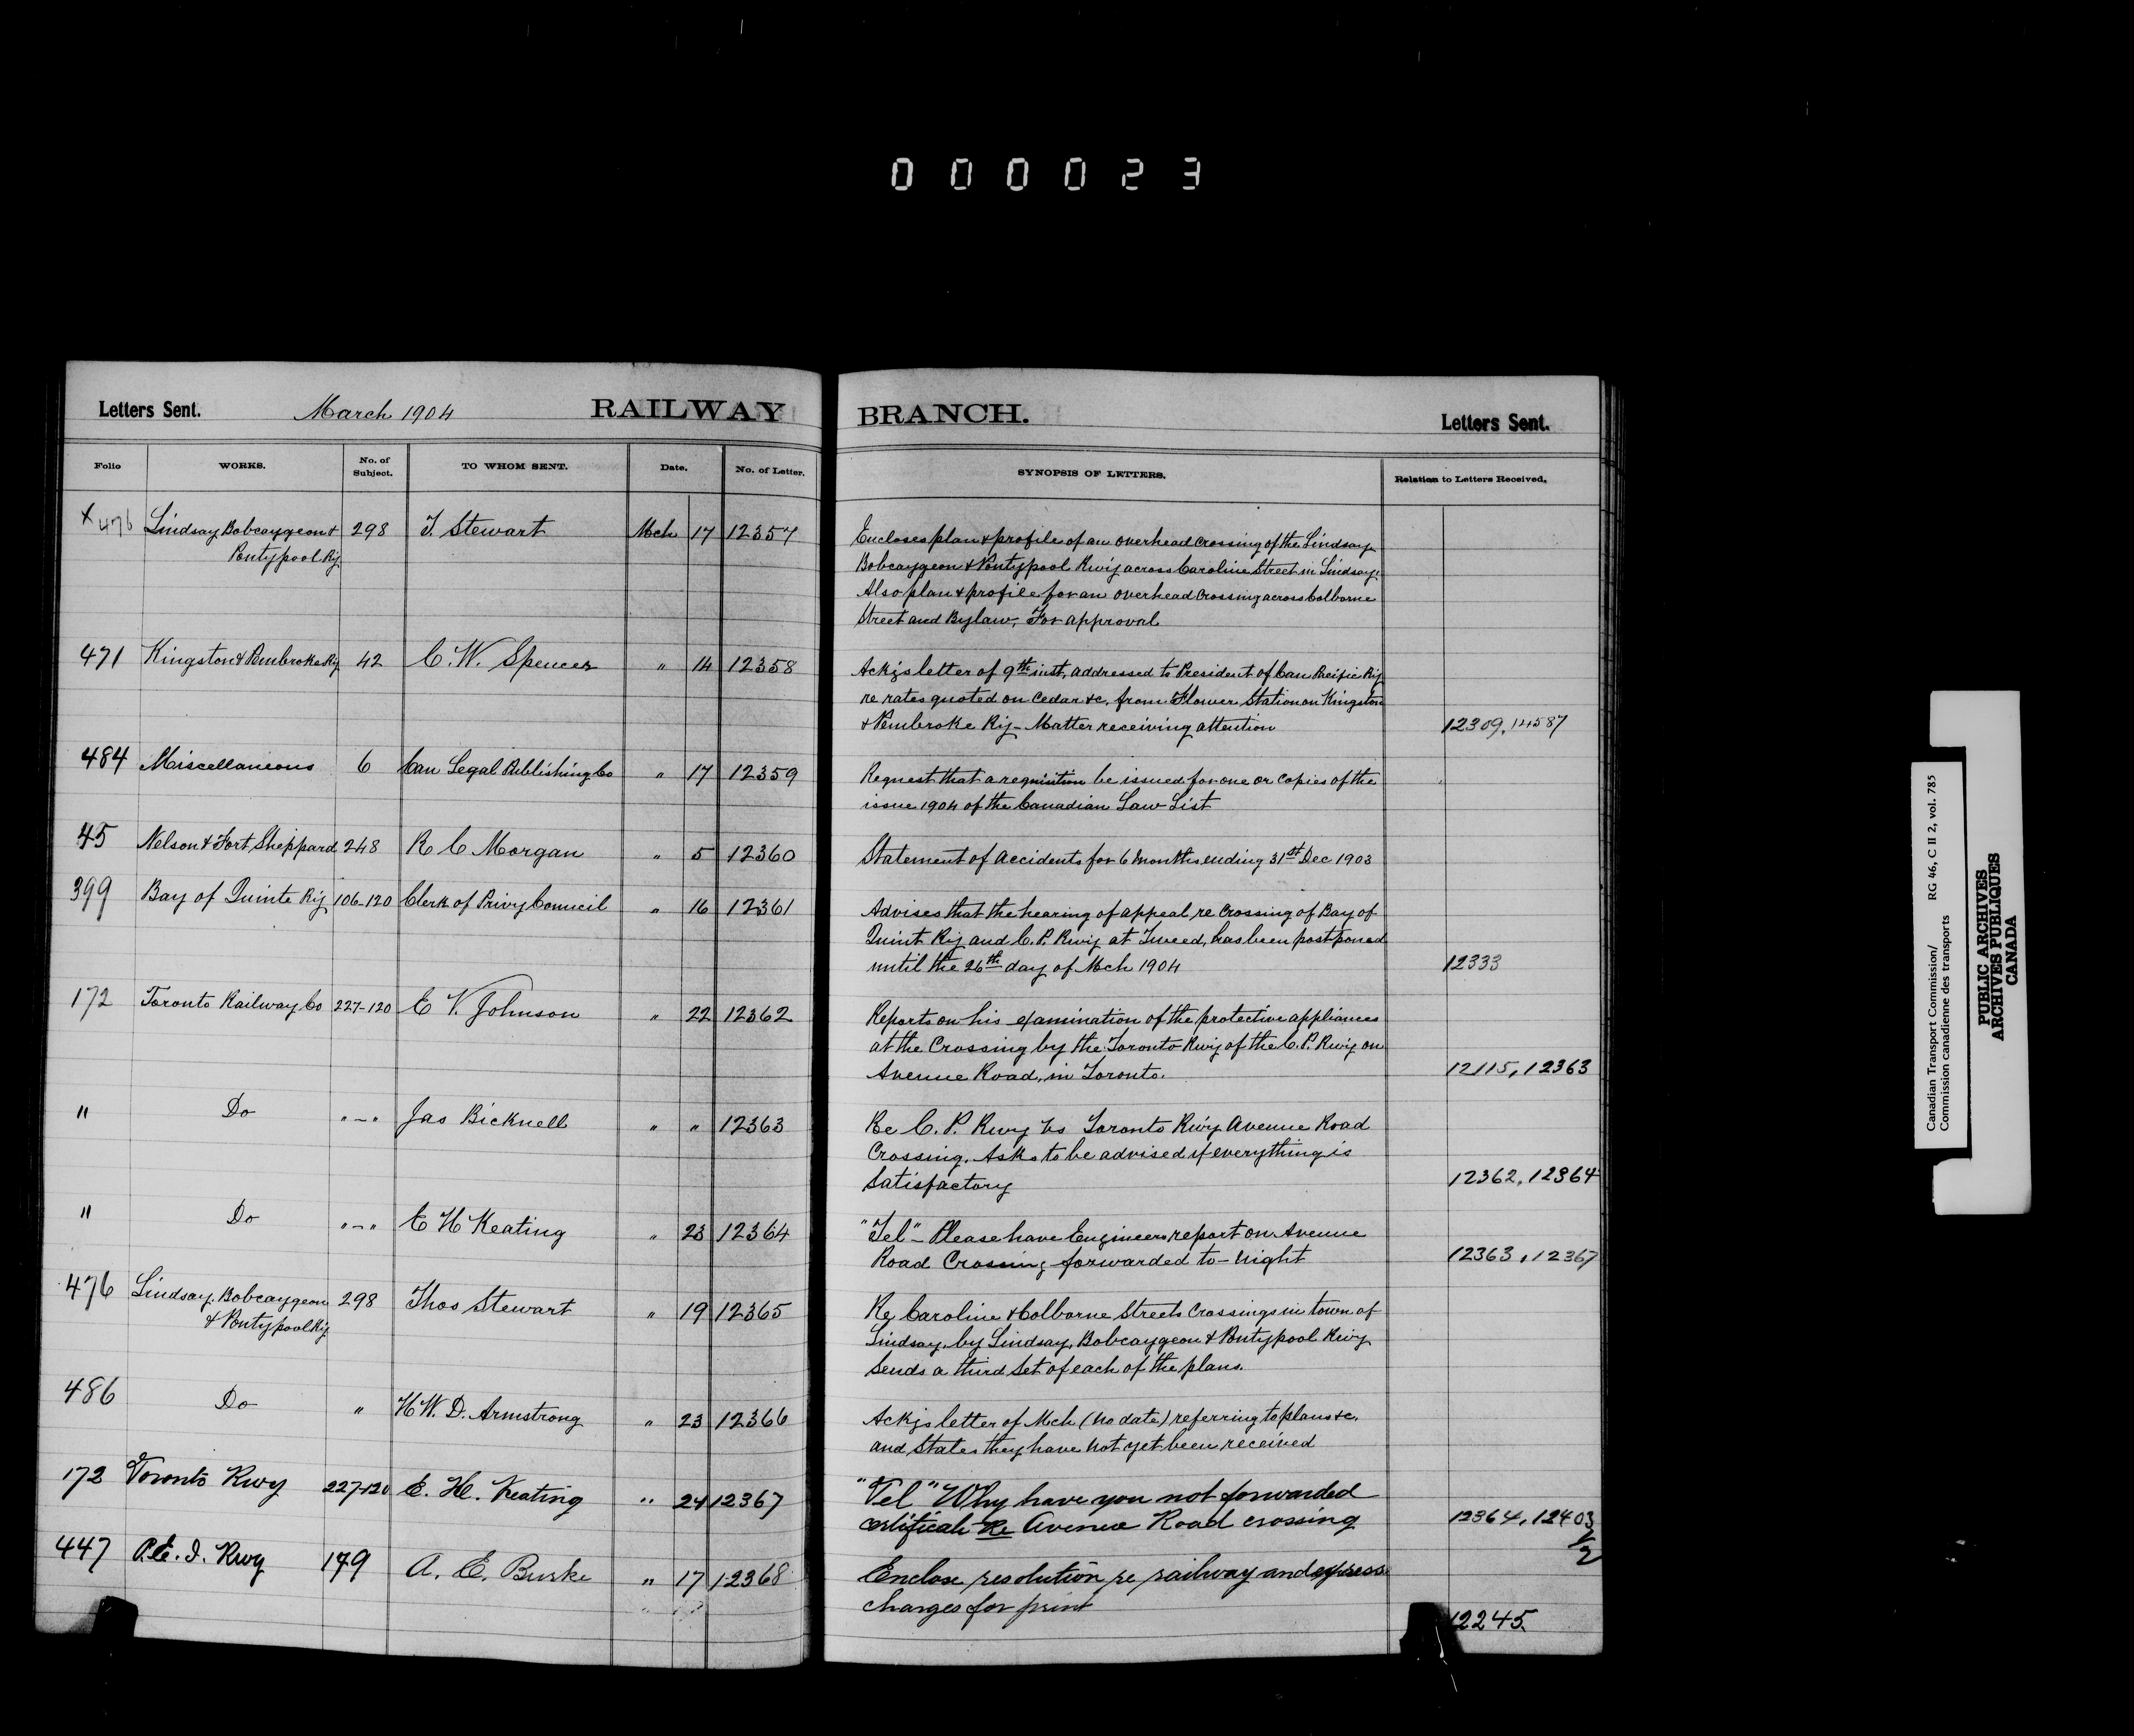 000023
Letters Sent. March 1904 RAILWAY BRANCH. Letters Sent.
Folio WORKS. No. of Subject. TO WHOM SENT. Date. No. of Letter. SYNOPSIS OF LETTERS. Relation to Letters Received.
x 476 Lindsay Bobcaygeon & 298 T. Stewart Mch 17 12357 Encloses plan & profile of an overhead crossing of the Lindsay
Pontypool Ry Bobcaygeon & Pontypool Rwy across Caroline Street in Lindsay.
Also plan & profile for an overhead crossing across Colborne
Street and Bylaw, For approval
471 Kingston & Pembroke Ry 42 C. W. Spencer " 14 12358 Ackgs letter of 9th inst, addressed to President of Can Pacific Ry
re rates quoted on Cedar &c, from Flower Station on Kingston
& Pembroke Ry - Matter receiving attention 12309, 14587
484 Miscellaneous 6 Can Legal Publishing Co " 17 12359 Request that a requisition be issued for one or copies of the
issue 1904 of the Canadian Law List
45 Nelson & Fort Sheppard 248 R C Morgan " 5 12360 Statement of accidents for 6 months ending 31st Dec 1903
399 Bay of Quinte Ry 106-120 Clerk of Privy Council " 16 12361 Advises that the hearing of appeal re Crossing of Bay of
Quint Ry and C. P. Rwy at Tweed, has been postponed
until the 26th day of Mch 1904 12333
172 Toronto Railway Co 227-120 E V. Johnson " 22 12362 Reports on his examination of the protective appliances
at the Crossing by the Toronto Rwy of the C. P. Rwy on
Avenue Road, in Toronto. 12115, 12363
" Do "-" Jas Bicknell " " 12363 Re C. P. Rwy vs Toronto Rwy Avenue Road
Crossing. Asks to be advised if everything is
satisfactory 12362, 12364
" Do "-" E H Keating " 23 12364 "Tel" - Please have Engineers report on Avenue
Road Crossing forwarded to-night 12363, 12367
476 Lindsay, Bobcaygeon 298 Thos Stewart " 19 12365 Re Caroline & Colborne Streets Crossings in town of
& Pontypool Ry Lindsay, by Lindsay, Bobcaygeon & Pontypool Rwy
Sends a third set of each of the plans.
486 Do " H W. D. Armstrong " 23 12366 Ackgs letter of Mch (no date) referring to plans &c.
and states they have not yet been received
172 Toronto Rwy 227-120 E. H. Keating " 24 12367 "Tel" Why have you not forwarded
certificate Re Avenue Road crossing 12364, 12403 1/2
447 P.E.I. Rwy 179 A. E. Burke " 17 12368 Enclose resolution re railway and express
charges for print
12245
Canadian Transport Commission/ RG 46, C II 2, vol. 785
Commission canadienne des transports
PUBLIC ARCHIVES
ARCHIVES PUBLIQUES
CANADA